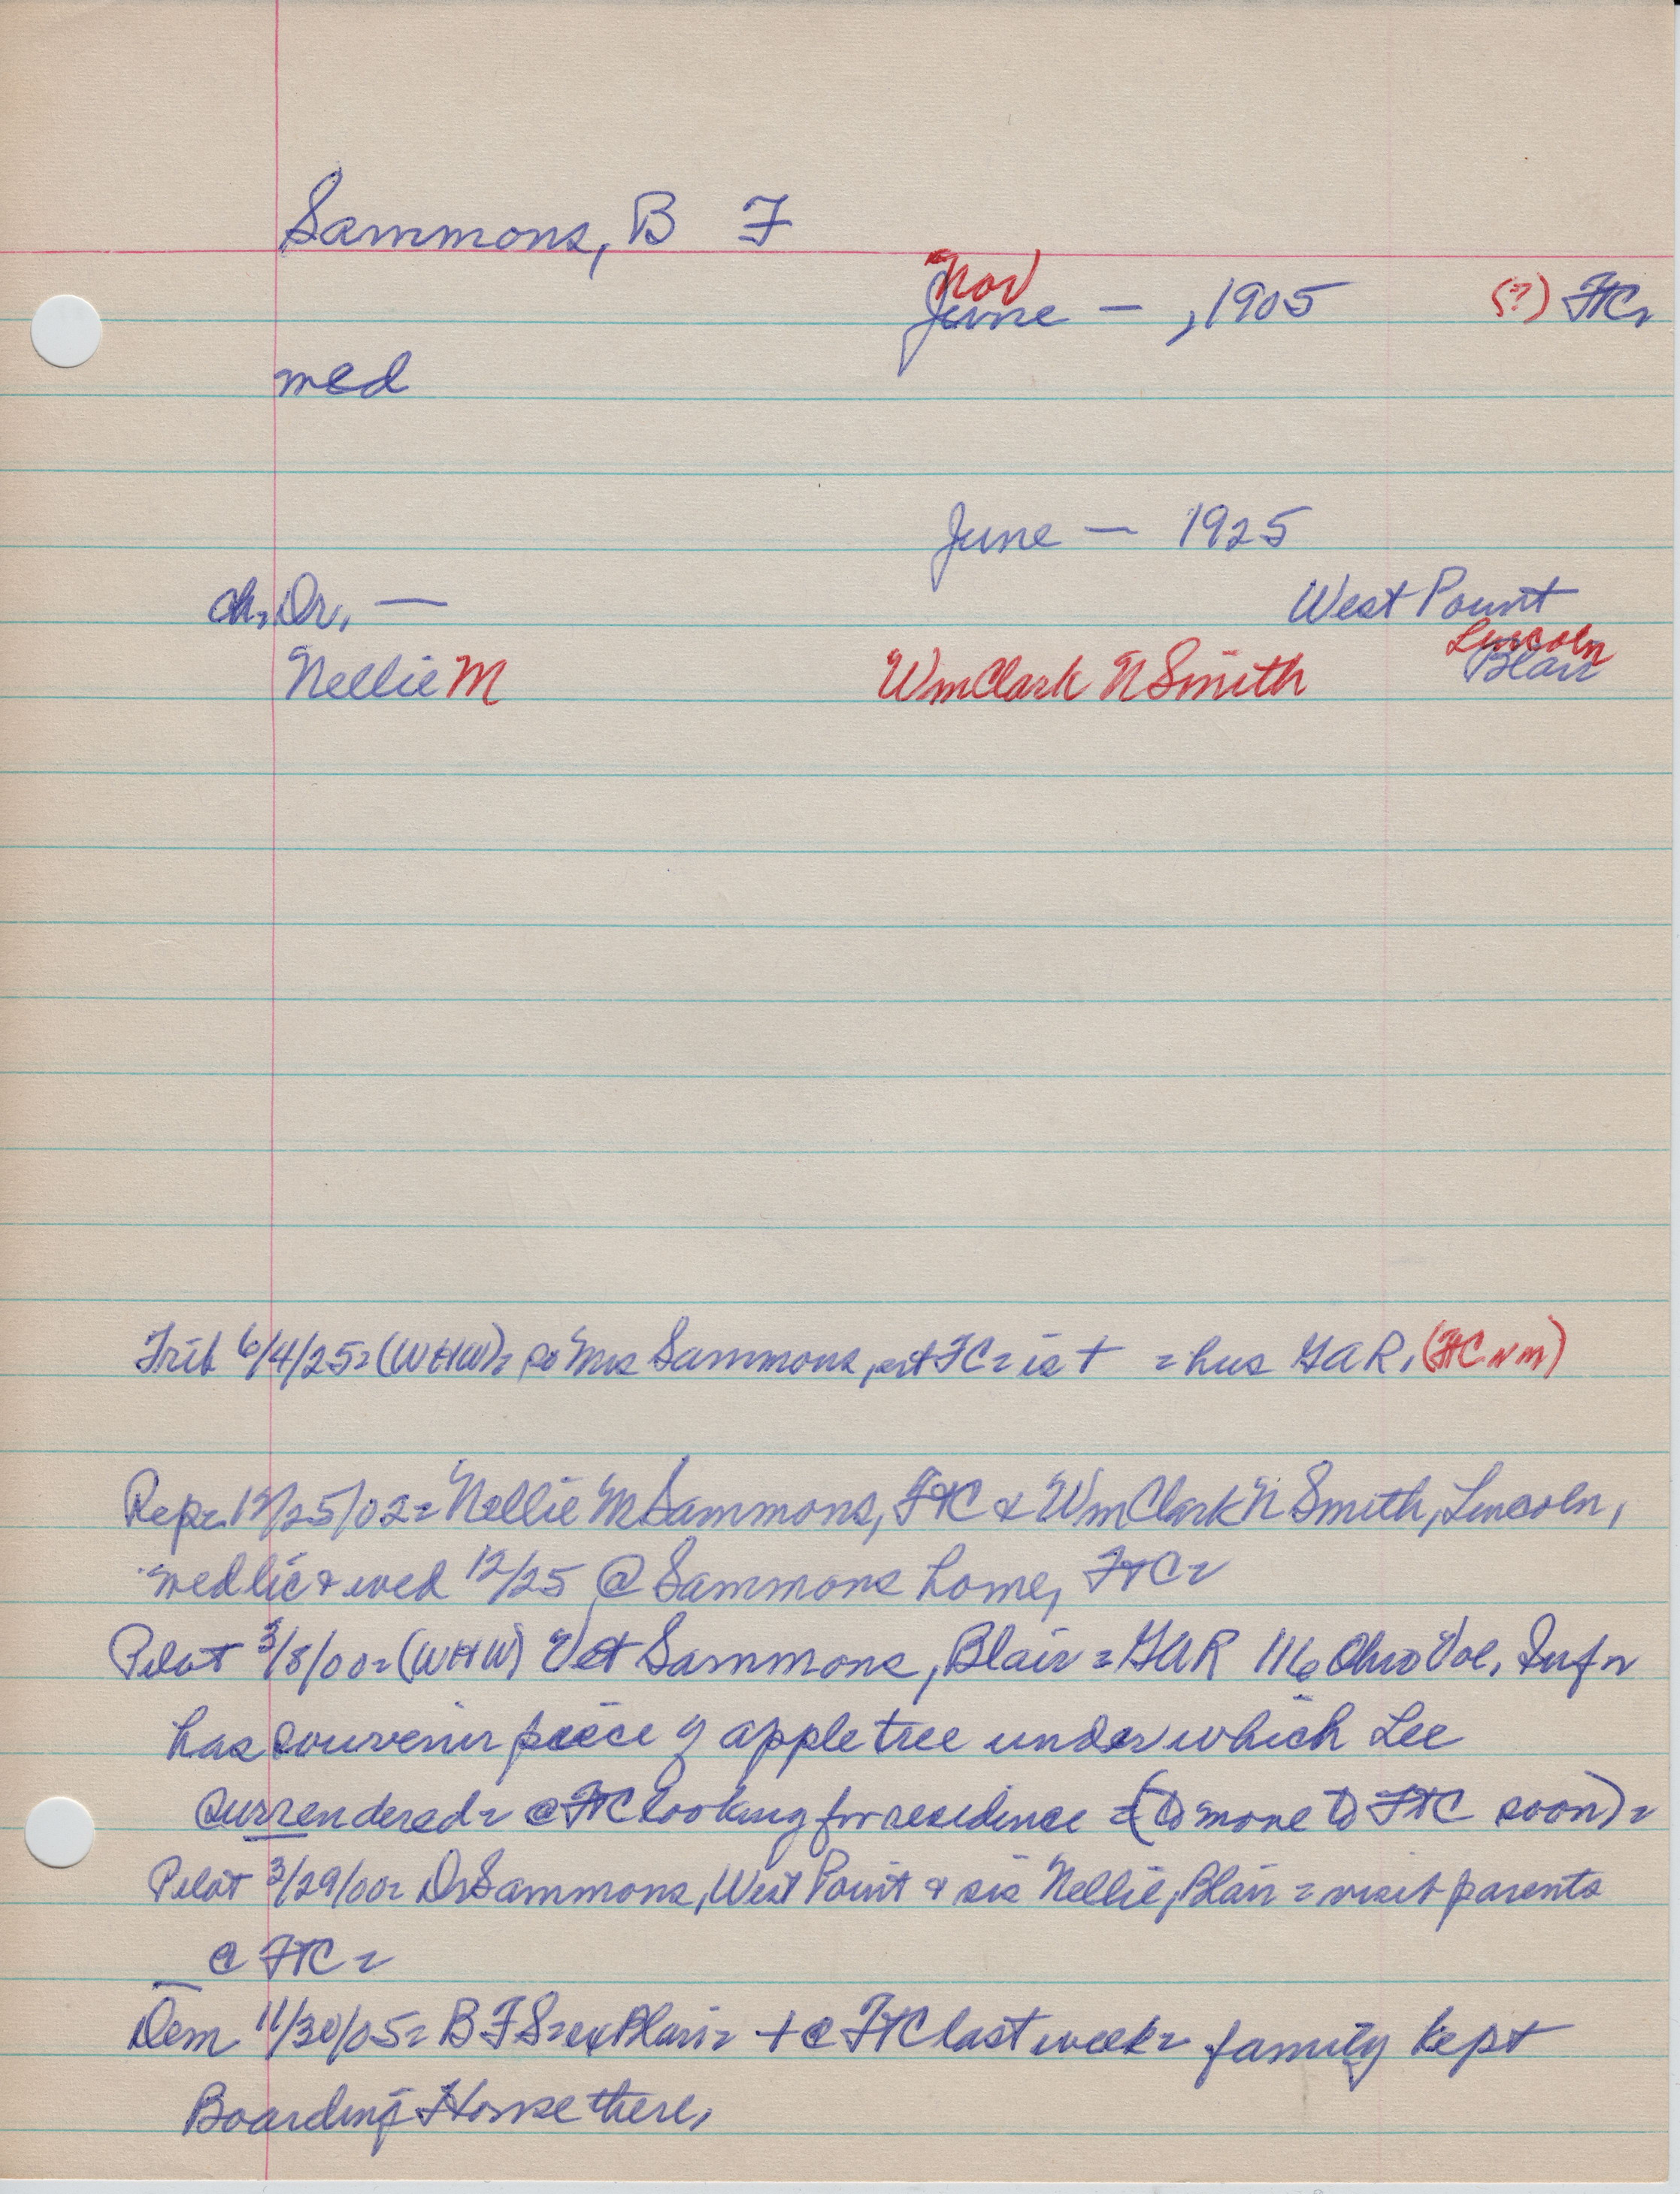 Sammons, B F
Nov
June — , 1905 (?) FtC,
med
June — 1925
ch, Dr, — West Point
Lincoln
Nellie M WmClark N Smith Blair
Trib 6/4/25= (WHW)= Mrs Sammons, FC= is + = hus GAR, (FtC
Rep= 12/25/02= Nellie M Sammons, FtC & WmClark N Smith, Lincoln,
med lic & wed 12/25 @ Sammons home, FtC=
Pilot 3/8/00= (WHW) Vet Sammons, Blair = GAR 116 Ohio Vol. Inf=
has souvenir piece of apple tree under which Lee
surrendered= @ FtC looking for residence = (to move to FtC soon)=
Pilot 3/29/00= Dr Sammons, West Point & sis Nellie, Blair = visit parents
@ FtC=
Dem 11/30/05= B F S= ex Blair= + @ FtC last week= family kept
Boarding House there,